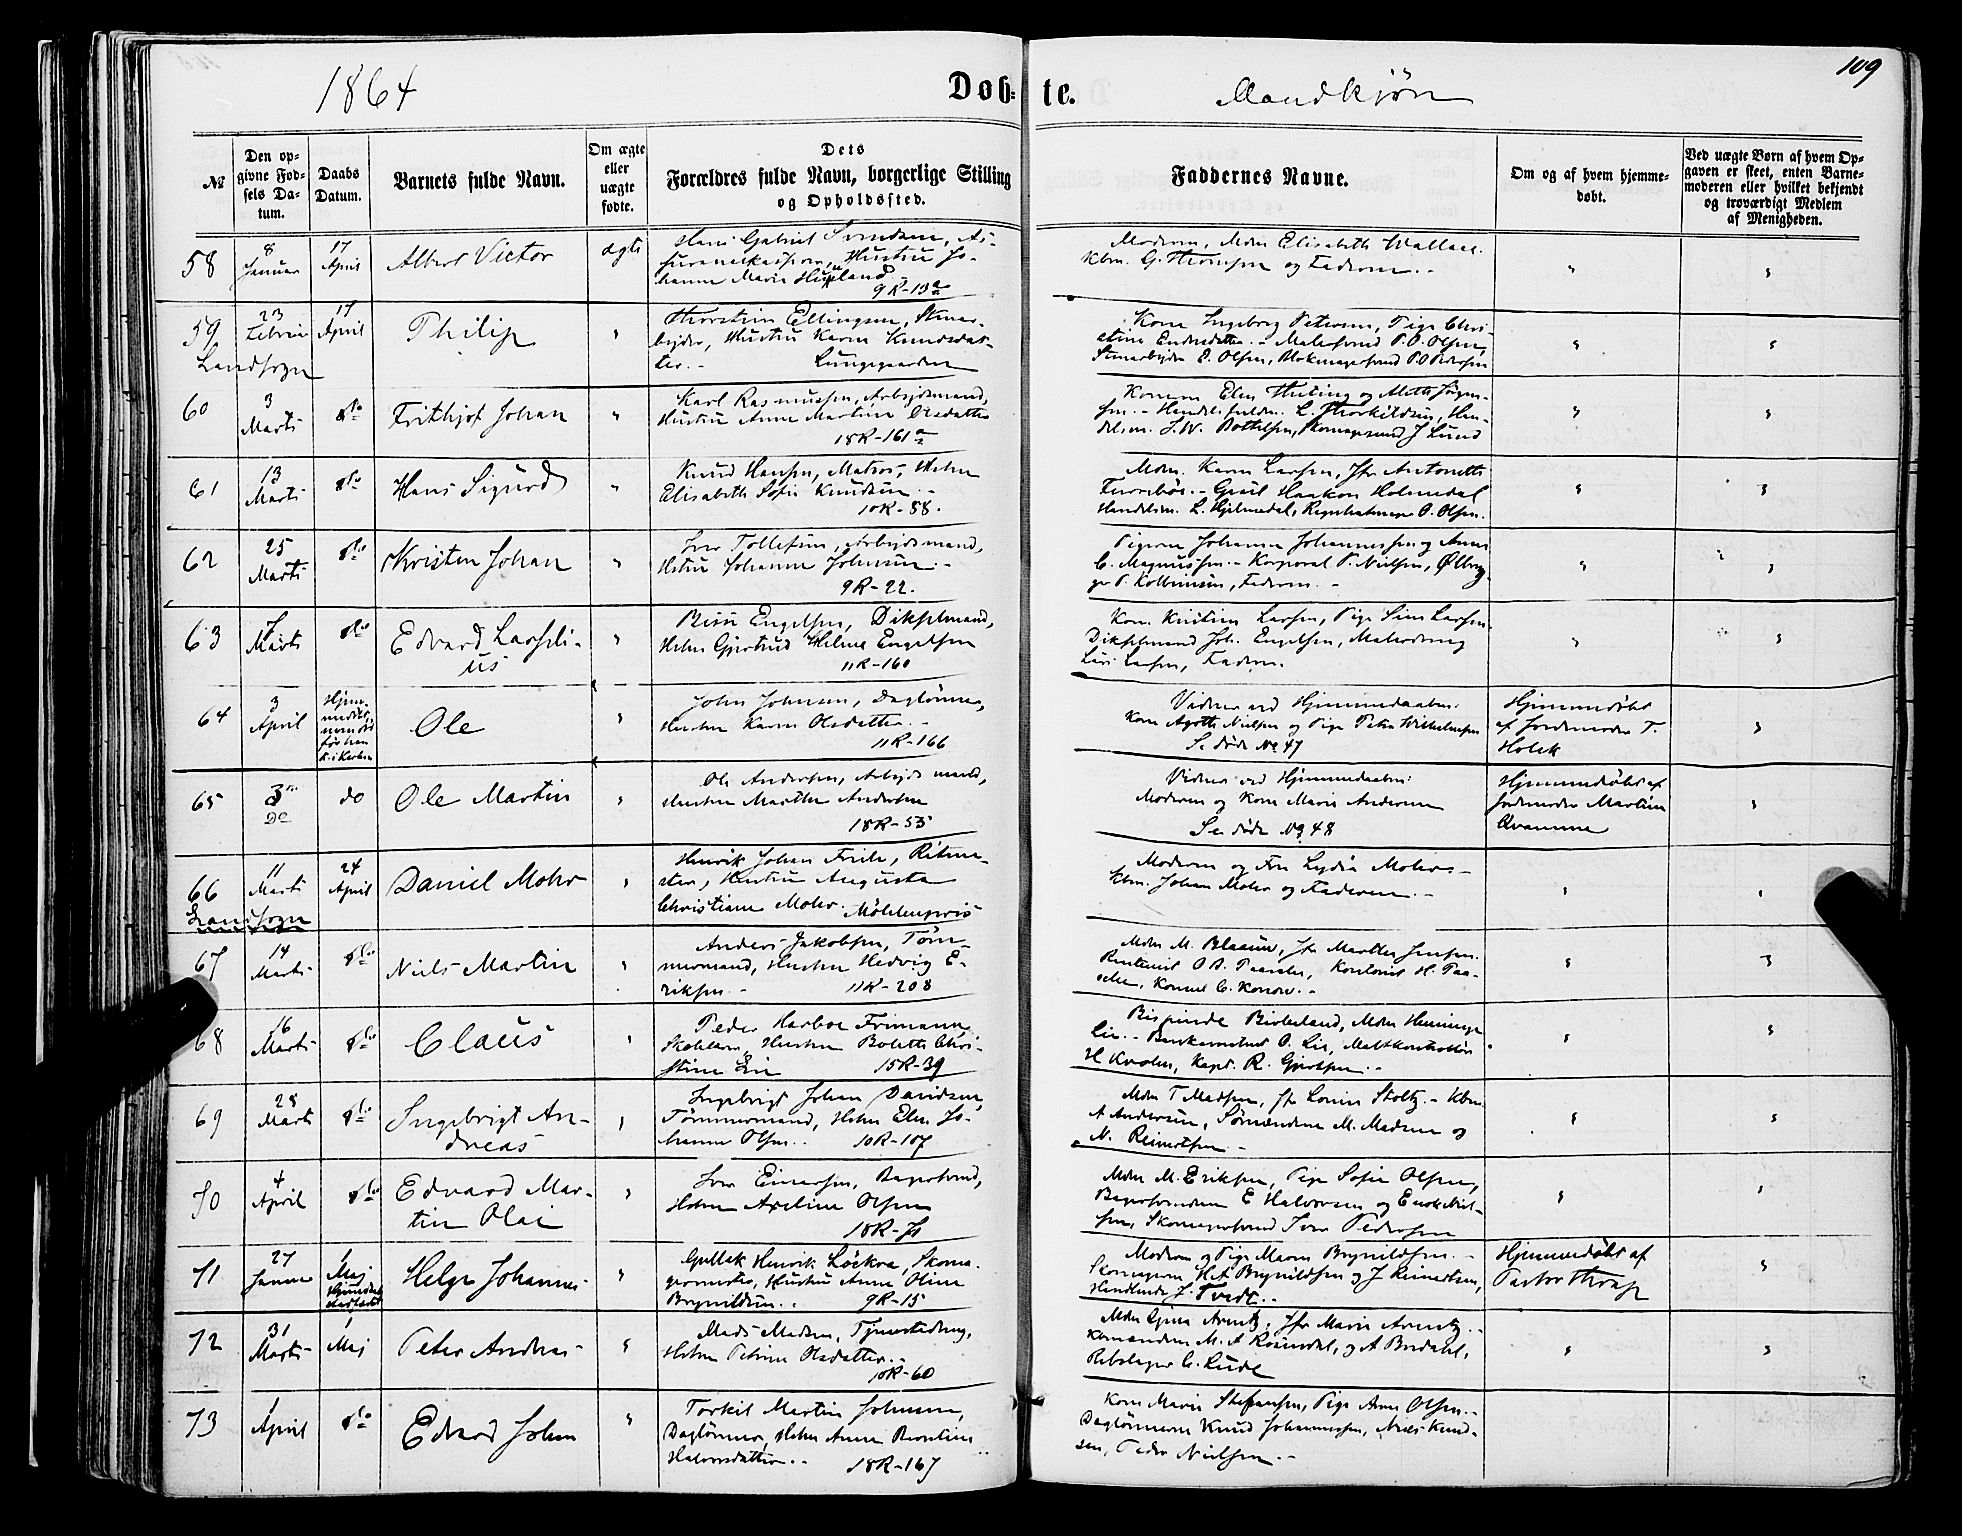 109
1864
Døb= te.
Mandkjøn
№
Den op=
givne Fød=
sels Da=
tum.
Daabs
Datum.
Barnets fulde Navn.
Om ægte
eller
uægte
fødte.
Dets
Forældres fulde Navn, borgerlige Stilling
og Opholdssted.
Faddernes Navne.
Om og af hvem hjemme=
døbt.
Ved uægte Børn af hvem Op=
gaven er skeet, enten Barne=
moderen eller hvilket bekjendt
og troværdigt Medlem
af Menigheden.
58
8
Januar
17
April
Albert Victor
ægte
Hans Gabriel Svendsen, As-
Hustru Jo-
hanne Marie
9R-13a
Moderen, Mdm Elisabeth Wallace.
Kbm. G. Thomsen og Faderen.-
59
Landsogn
23
Februar
17
April
Philip
Thorstein Ellingsen, Stenar-
beider, Hustru Karen Knudsdat-
ter.- Lungegaarden
Kone Ingeborg Petersen, Pige Chri-
stine - Malersvend P. O. Olsen,
Stenarbeider E. Olsen, P. O. Pedersen
60
3
Marts
do
Frithjof Johan
Karl Rasmussen, Arbejdsmand,
Hustru Anne Martine Olsdatter
18R-161a
Konerne Elen og
L. Thorkildsen,
J. W. Bottelsen, Skomagersvend J Lund
61
13
Marts
do
Hans Sigurd
Knud Hansen, Matros, Hstru
Elisabeth Sofie Knudsen.-
10R-88.
Mdm. Karen Larsen, Jfr Antonette
- Haakon Holmedal
L. Hjelmedal, O. Olsen.
62
25
Marts
do
Kristen Johan
Iver Tollefsen, Arbejdsmand,
Hstru Johanne Johnsen.-
9R-22.
Pigerne Johanne Johannessen og Anne
C. Magnussen.- Korporal P. Nielsen,
Faderen.-
63
7
Marts
do
Edvard Lasseli-
us
Engelsen,
Hstru Gjertrud Helene Engelsen
11R-160
Kone Kristine Larsen, Pige Sine Larsen
Joh. Engelsen, Malerdreng
Larsen, Faderen.
64
3
April
Ole
John Johnsen, Dagløner,
Hustru Karen Olsdatter.-
11R-166
Vidner ved Hjemmedaaben:
Kone Agathe Nielsen og Pige Petra Wilhelmsen
Se døde No 47
Hjemmedøbt
af Jordmoder T.
Holck
65
3
Do
do
Ole Martin
Ole Andersen, Arbejdsmand,
Hustru Marthe Andersen
18R-55
Vidner ved Hjemmedaaben:
Moderen og Kone Marie Andersen
Se døde No 48
Hjemmedøbt af
Jordmoder Martine
Qvamme
66
Landsogn
11
Marts
24
April
Daniel Mohr
Henrik Johan Friele, Ritme-
ster, Hustru Augusta
Christiane Mohr. Møhlenpris
Moderen og Fru Lydia Mohr.-
Kbm. Johan Mohr og Faderen.-
67
14
Marts
do
Niels Martin
Anders Jakobsen, Tøm-
mermand, Hustru Hedvig E-
riksen.- 11R-208
Mdm M. Blaauw, Jfr Marthe Jensen.
Kontorist H. Paa-
sche, Konsul C. Konow.-
68
16
Marts
do
Claus
Peder Harboe Frimann,
Hustru Bolette Chri-
stine Lie 15R-39
Lie.- O. Lie,
Kapt. R. Gjertsen.-
69
28
Marts
do
Ingebrigt An-
dreas
Ingebrigt Johan Davidsen,
Tømmermand, Hstru Elen Jo-
hanne Olsen.. 10R-107
Mdm T Madsen, Jfr Louise Stoltz.- Kbm.
A Andersen, Sømændene M. Madsen og
N. Reinertsen.-
70
4
April
do
Edvard Mar-
tin Olai
Iver Einarsen, Bagersvend,
Hstru Axeline Olsen
18R-71
Mdm M. Eriksen, Pige Sofie Olsen,
Bagersvendene E Halvorsen og
Skomagersvend Iver Pedersen
71
27
Januar
1
Maj
Helge Johannes
Gullak Henrik Løckra, Skoma-
germester, Hustru Anne Oline
Brynildsen.. 9R-15
Moderen og Pige Maren Brynildsen.-
Skomagerne H. A Brynildsen og J Reinertsen,
J. Tvedt.-
Hjemmedøbt af
Pastor Thorup
72
31
Marts
1
Maj
Peter Andreas
Mads Madsen,
Hstru Petrine Olsdatter.-
10R-60
Mdm Gjina Arentz, Jfr Marie Arentz.-
M. A Rosendal, og A Birdahl,
Rebslager C. Lude
73
1
April
do
Edvard Johan
Torkil Martin Johnsen,
Dagløner, Hstru Anne Berntine
Halvorsdatter.. 18R-167
Kone Marie Steffensen, Pige Anne Olsen.-
Daglønerne Knud Johannessen, Niels Knud-
sen, Peder Nielsen.-